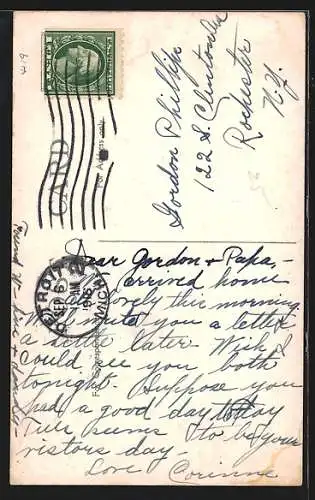 419
CARD
For Address only.
Gordon Phillips
122 S. Clinton
Rochester
N.Y.
DETROIT
SEP 6
AM
1916
MICH.
Dear Gordon + Papa,-
arrived home
safe lovely this morning.
Will write you a letter
a little later. Wish I
could see you both
tonight. Suppose you
had a good day today
Tues seems to be your
visitors day-
Love Corinne